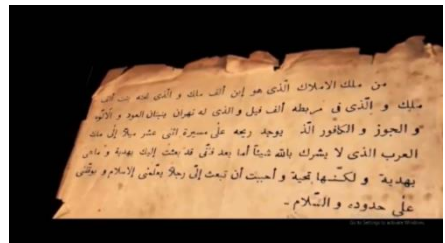 من ملك الاملاك الّذى هو إبن ألف ملك و الّذى تحته بنت ألف
ملك و الّذى فى مربطه ألف فيل و الذى له نهران ينبتان العود و الألوه
و الجوز و الكافور الّذى يوجد ريحه على مسيرة اثنى عشر ميلا إلى ملك
العرب الذى لا يشرك بالله شيئا أما بعد فانّى قد بعثت إليك بهدية و ماهى
بهدية و لكنها تحية و أحببت أن تبعث إلىّ رجلا يعلمنى الاسلام و يوقفنى
على حدوده و السّلام -
Go to Settings to activate Windows.